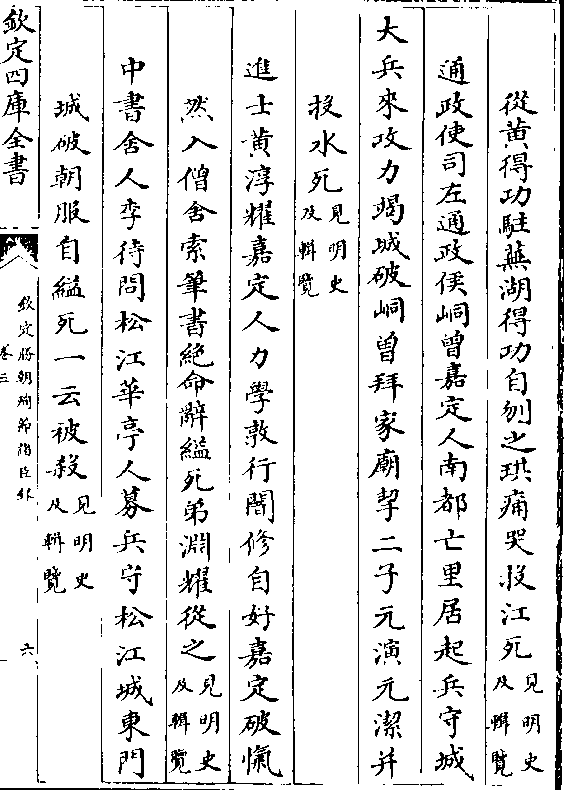 從黄得功駐蕪湖得功自刎之珙痛哭投江死見明史及輯覽
通政使司左通政侯峒曾嘉定人南都亡里居起兵守城
大兵來攻力竭城破峒曾拜家廟挈二子元演元潔并
投水死見明史及輯覽
進士黄淳耀嘉定人力學敦行闇修自好嘉定破愾
然入僧舍索筆書絶命辭縊死弟淵耀從之見明史及輯覽
中書舍人李待問松江華亭人募兵守松江城東門
城破朝服自縊死一云被殺見明史及輯覽
欽定四庫全書
欽定勝朝殉節諸臣録
卷三
六